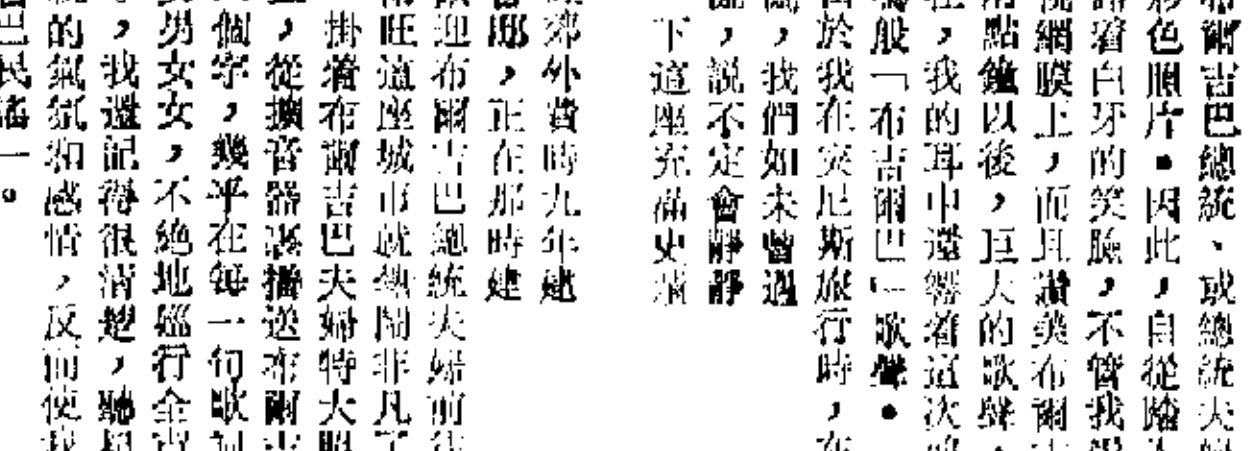 爾吉巴總統、或總統夫
彩色照片。因此,自從踏入
着白牙的笑臉,不管我
視網膜上,而且讚美布爾
點鐘以後,巨大的歌聲,
,我的耳中還響着這次
般「布吉爾巴」歌聲。
於我在突尼斯旅行時,在
,我們如未曾過
,說不定會靜靜
下這座充滿史
郊外費時九年建
邸,正在那時建
迎布爾吉巴總統夫婦前往
旺這座城市就熱鬧非凡了
掛着布爾吉巴夫婦特大照
,從擴音器廣播送布爾吉
個字,幾乎在每一句歌詞
男女女,不絕地巡行全
,我還記得很清楚,聽起
的氣氛和感情,反而使我
巴民謠一。